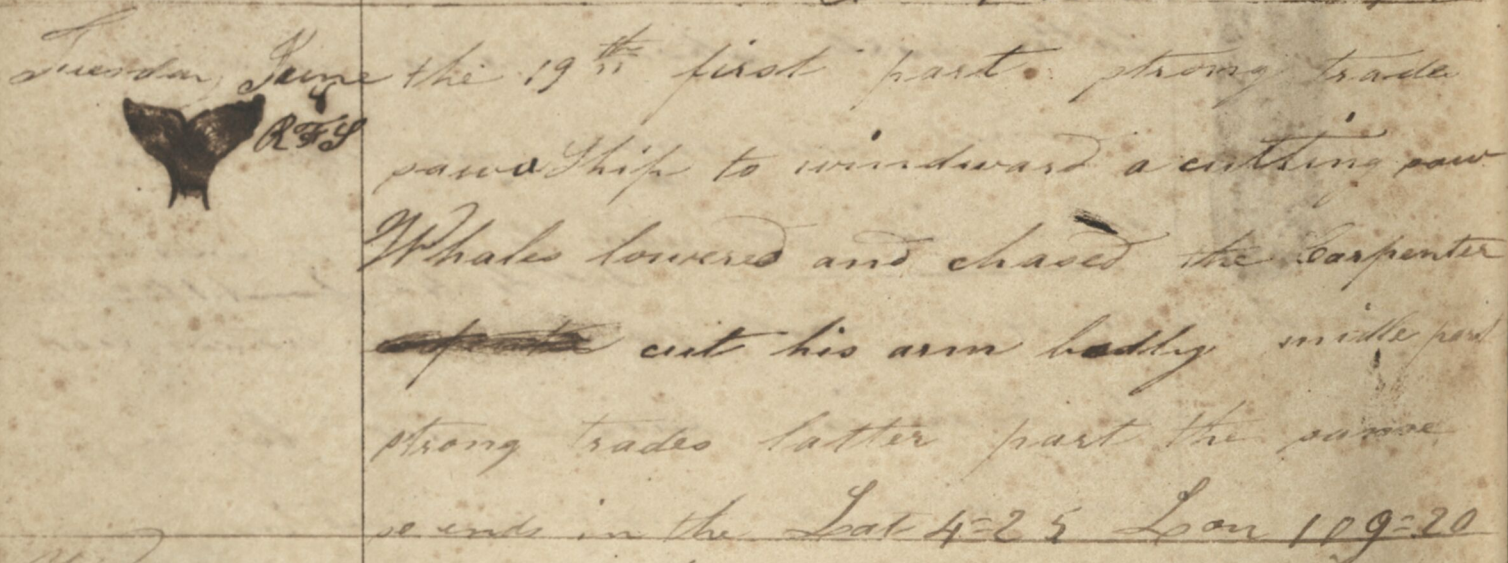 Tuesday June the 19th first part strong trade
RFS
saw a Ship to windward a cutting saw
Whales lowered and chased the Carpenter
cut his arm badly midle part
strong trades latter part the same
so ends in the Lat 4=25 Lon 109=20